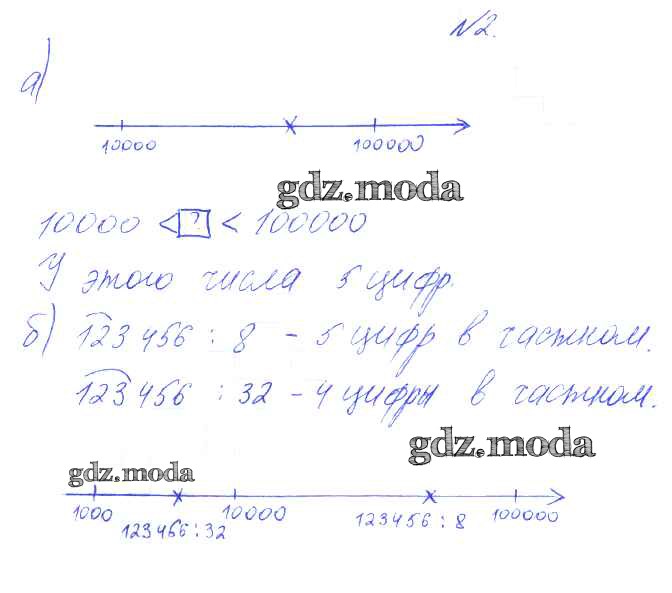 №2.
а)
10000 100000
gdz.moda
10000 < ? < 100000
У этого числа 5 цифр.
б) 123456 : 8 - 5 цифр в частном.
123456 : 32 - 4 цифры в частном.
gdz.moda
gdz.moda
1000 10000 100000
123456 : 32 123456 : 8